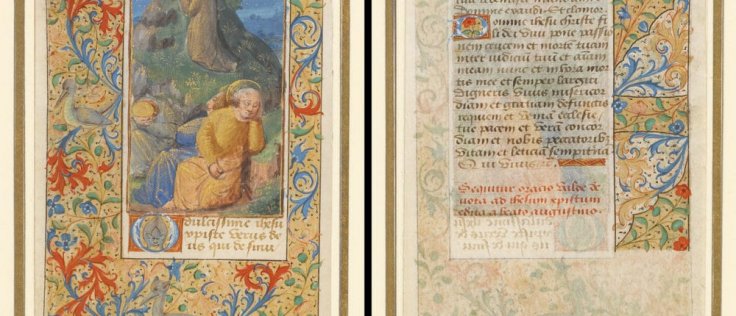 O dulcissime ihesu
xpiste verus de
us qui de sinu
Domine exaudi. Et clamor
Domine ihesu christe fi
li dei vivi pone passio
nem crucem et morte tuam
inter iudiciū tuū et animā
meam nunc et in hora mor
tis mee et semper largiri
digneris vivis misericor
diam et gratiam defunctis
requiem et veniā ecclesie
tue pacem et verā concor
diam et nobis peccatoribꝰ
vitam et leticiā sempiternā
Sequitur oracio valde de
vota ad ihesum xpistum
edita a beato augustino